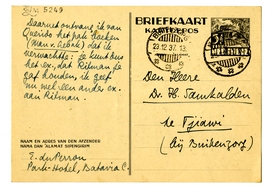 5249
Daarnet ontving ik van
Querido het pak boeken
(Man v. Gebok) dat ik
verwachtte. Je kunt dus
het ex., dat Ritman je
gaf houden, ik geef
nu wel een ander ex.
aan Ritman.
NAAM EN ADRES VAN DEN AFZENDER
NAMA DAN ALAMAT SIPENGIRIM
E. du Perron
Park-Hotel, Batavia C.
BRIEFKAART
KARTOE POS
23.12.37
Den Heere
Dr. H. Samkalden
te Tjiawi
(bij Buitenzorg)